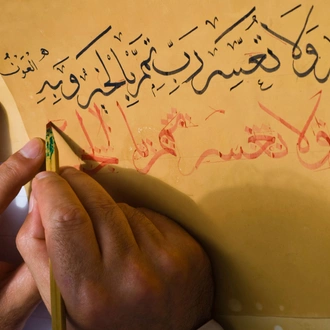 وَلَا تُعَسِّرْ رَبِّ تَمِّمْ بِالْخَيْرِ وَبِهِ الْعَوْنُ
ولا تعسر تمم